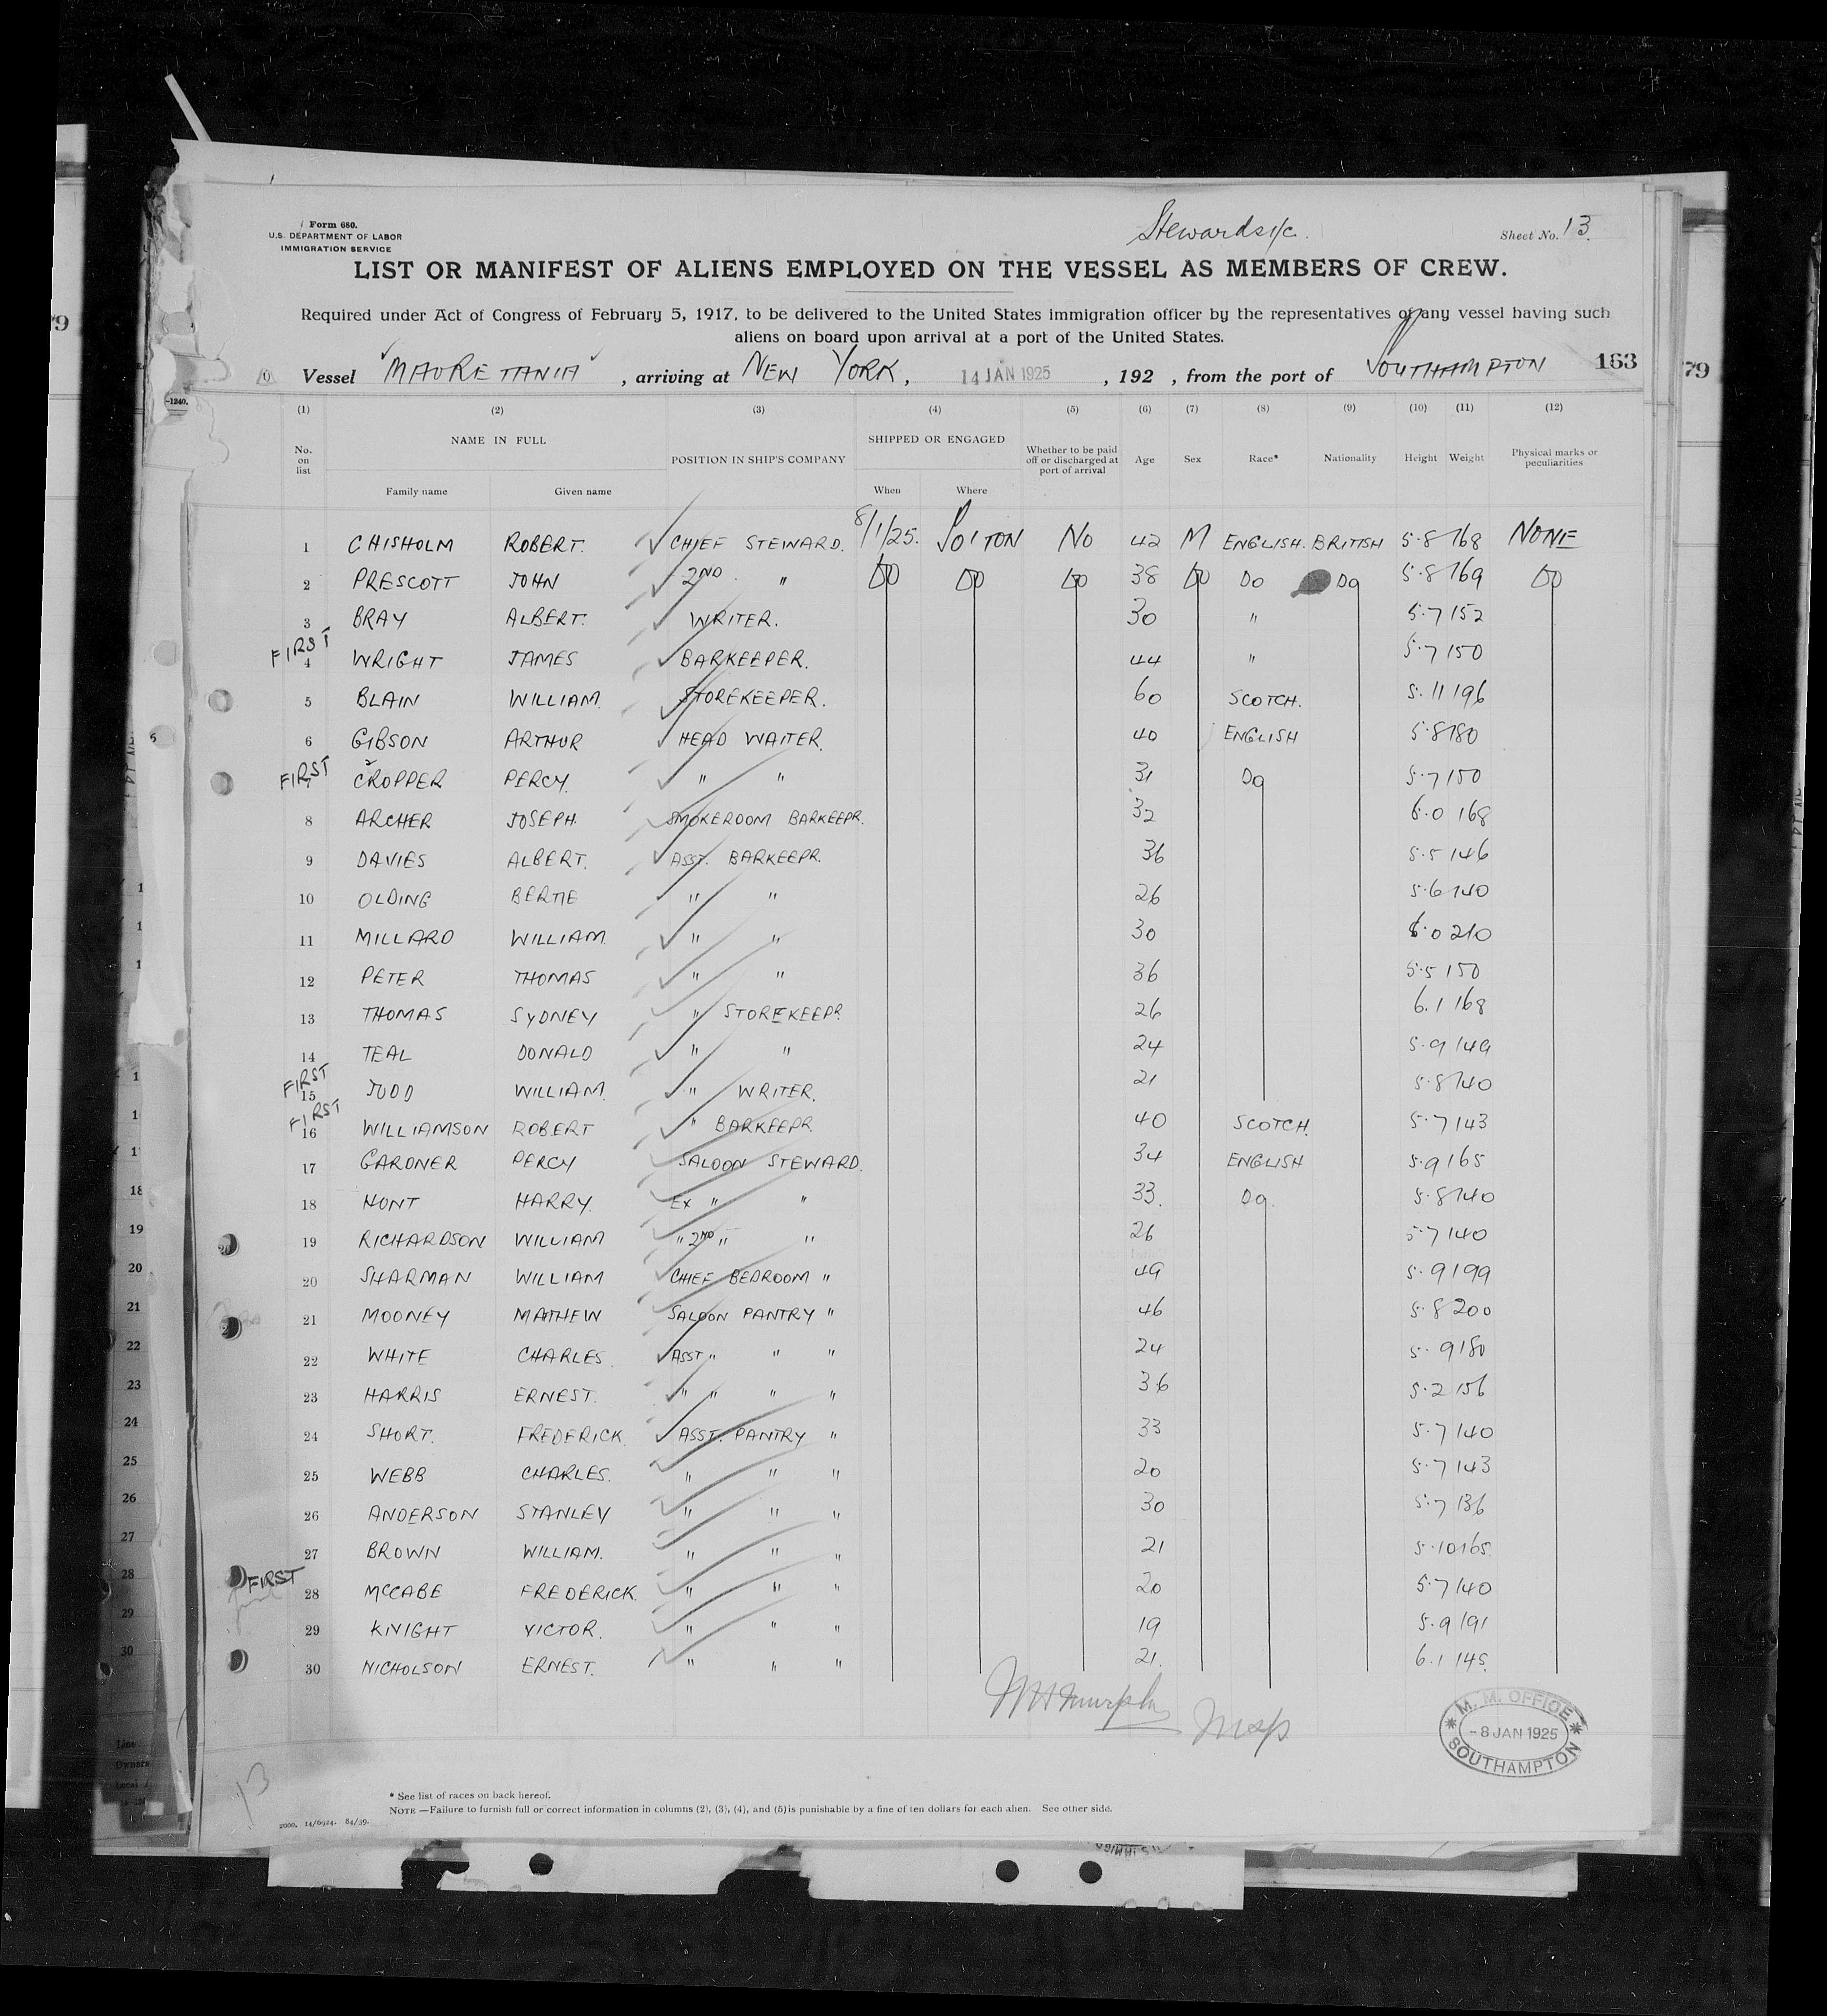 Form 680.
U.S. DEPARTMENT OF LABOR
IMMIGRATION SERVICE
Stewards &/c.
Sheet No. 13.
LIST OR MANIFEST OF ALIENS EMPLOYED ON THE VESSEL AS MEMBERS OF CREW.
Required under Act of Congress of February 5, 1917, to be delivered to the United States immigration officer by the representatives of any vessel having such
aliens on board upon arrival at a port of the United States.
Vessel "MAURETANIA", arriving at NEW YORK, 14 JAN 1925, 192 , from the port of SOUTHAMPTON 163
(1) (2) (3) (4) (5) (6) (7) (8) (9) (10) (11) (12)
No. on list NAME IN FULL POSITION IN SHIP'S COMPANY SHIPPED OR ENGAGED Whether to be paid off or discharged at port of arrival Age Sex Race* Nationality Height Weight Physical marks or peculiarities
Family name Given name When Where
1 CHISHOLM ROBERT. CHIEF STEWARD. 8/1/25. SO'TON NO 42 M ENGLISH. BRITISH 5.8 168 NONE
2 PRESCOTT JOHN 2ND " DO DO DO 38 DO DO DO 5.8 169 DO
3 BRAY ALBERT. WRITER. 30 " 5.7 152
FIRST 4 WRIGHT JAMES BARKEEPER. 44 " 5.7 150
5 BLAIN WILLIAM. STOREKEEPER. 60 SCOTCH. 5.11 196
6 GIBSON ARTHUR HEAD WAITER. 40 ENGLISH 5.8 180
FIRST 7 CROPPER PERCY. " " 31 DO 5.7 150
8 ARCHER JOSEPH. SMOKEROOM BARKEEPR. 32 6.0 168
9 DAVIES ALBERT. ASST. BARKEEPR. 36 5.5 146
10 OLDING BERTIE " " 26 5.6 140
11 MILLARD WILLIAM. " " 30 6.0 210
12 PETER THOMAS " " 36 5.5 150
13 THOMAS SYDNEY " STOREKEEPR. 26 6.1 168
14 TEAL DONALD " " 24 5.9 149
FIRST 15 JUDD WILLIAM. " WRITER. 21 5.8 140
FIRST 16 WILLIAMSON ROBERT " BARKEEPR. 40 SCOTCH. 5.7 143
17 GARDNER PERCY SALOON STEWARD. 34 ENGLISH 5.9 165
18 HUNT HARRY. EX " " 33. DO. 5.8 140
19 RICHARDSON WILLIAM " 2ND " " 26 5.7 140
20 SHARMAN WILLIAM CHIEF BEDROOM " 49 5.9 199
21 MOONEY MATHEW SALOON PANTRY " 46 5.8 200
22 WHITE CHARLES. ASST " " " 24 5.9 180
23 HARRIS ERNEST. " " " " 36 5.2 156
24 SHORT. FREDERICK. ASST. PANTRY " 33 5.7 140
25 WEBB CHARLES. " " " 20 5.7 143
26 ANDERSON STANLEY " " " 30 5.7 136
27 BROWN WILLIAM. " " " 21 5.10 165
FIRST 28 MCCABE FREDERICK. " " " 20 5.7 140
29 KNIGHT VICTOR. " " " 19 5.9 191
30 NICHOLSON ERNEST. " " " 21. 6.1 145.
M. M. OFFICE
-8 JAN 1925
SOUTHAMPTON
13
* See list of races on back hereof.
NOTE —Failure to furnish full or correct information in columns (2), (3), (4), and (5) is punishable by a fine of ten dollars for each alien. See other side.
2000. 14/6924. 84/39.